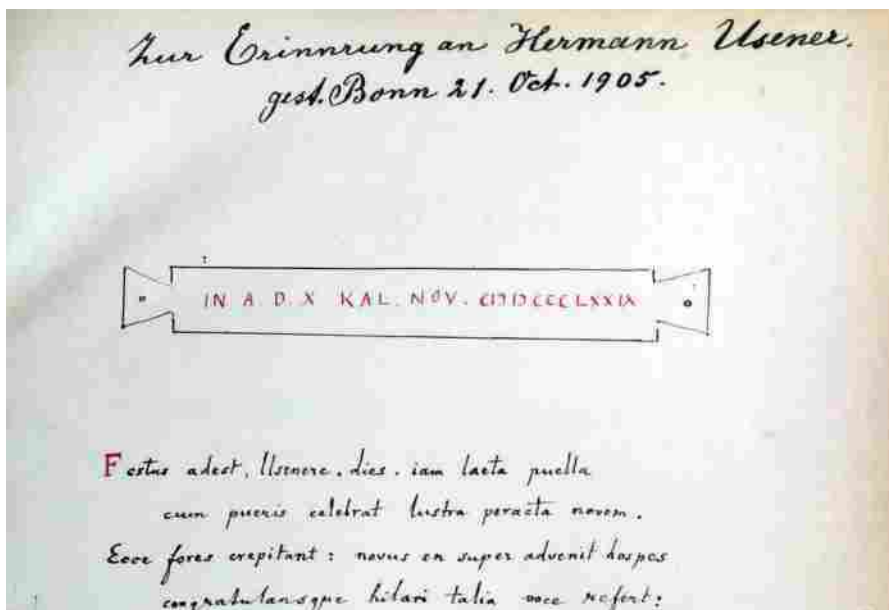 Zur Erinnrung an Hermann Usener.
gest. Bonn 21. Oct. 1905.
IN A. D. X KAL. NOV. CIↃIↃCCCLXXIX
Festus adest, Usenere, dies. iam laeta puella
cum pueris celebrat lustra peracta novem.
Ecce fores crepitant: novus en super advenit hospes
congratulansque hilari talia voce refert: